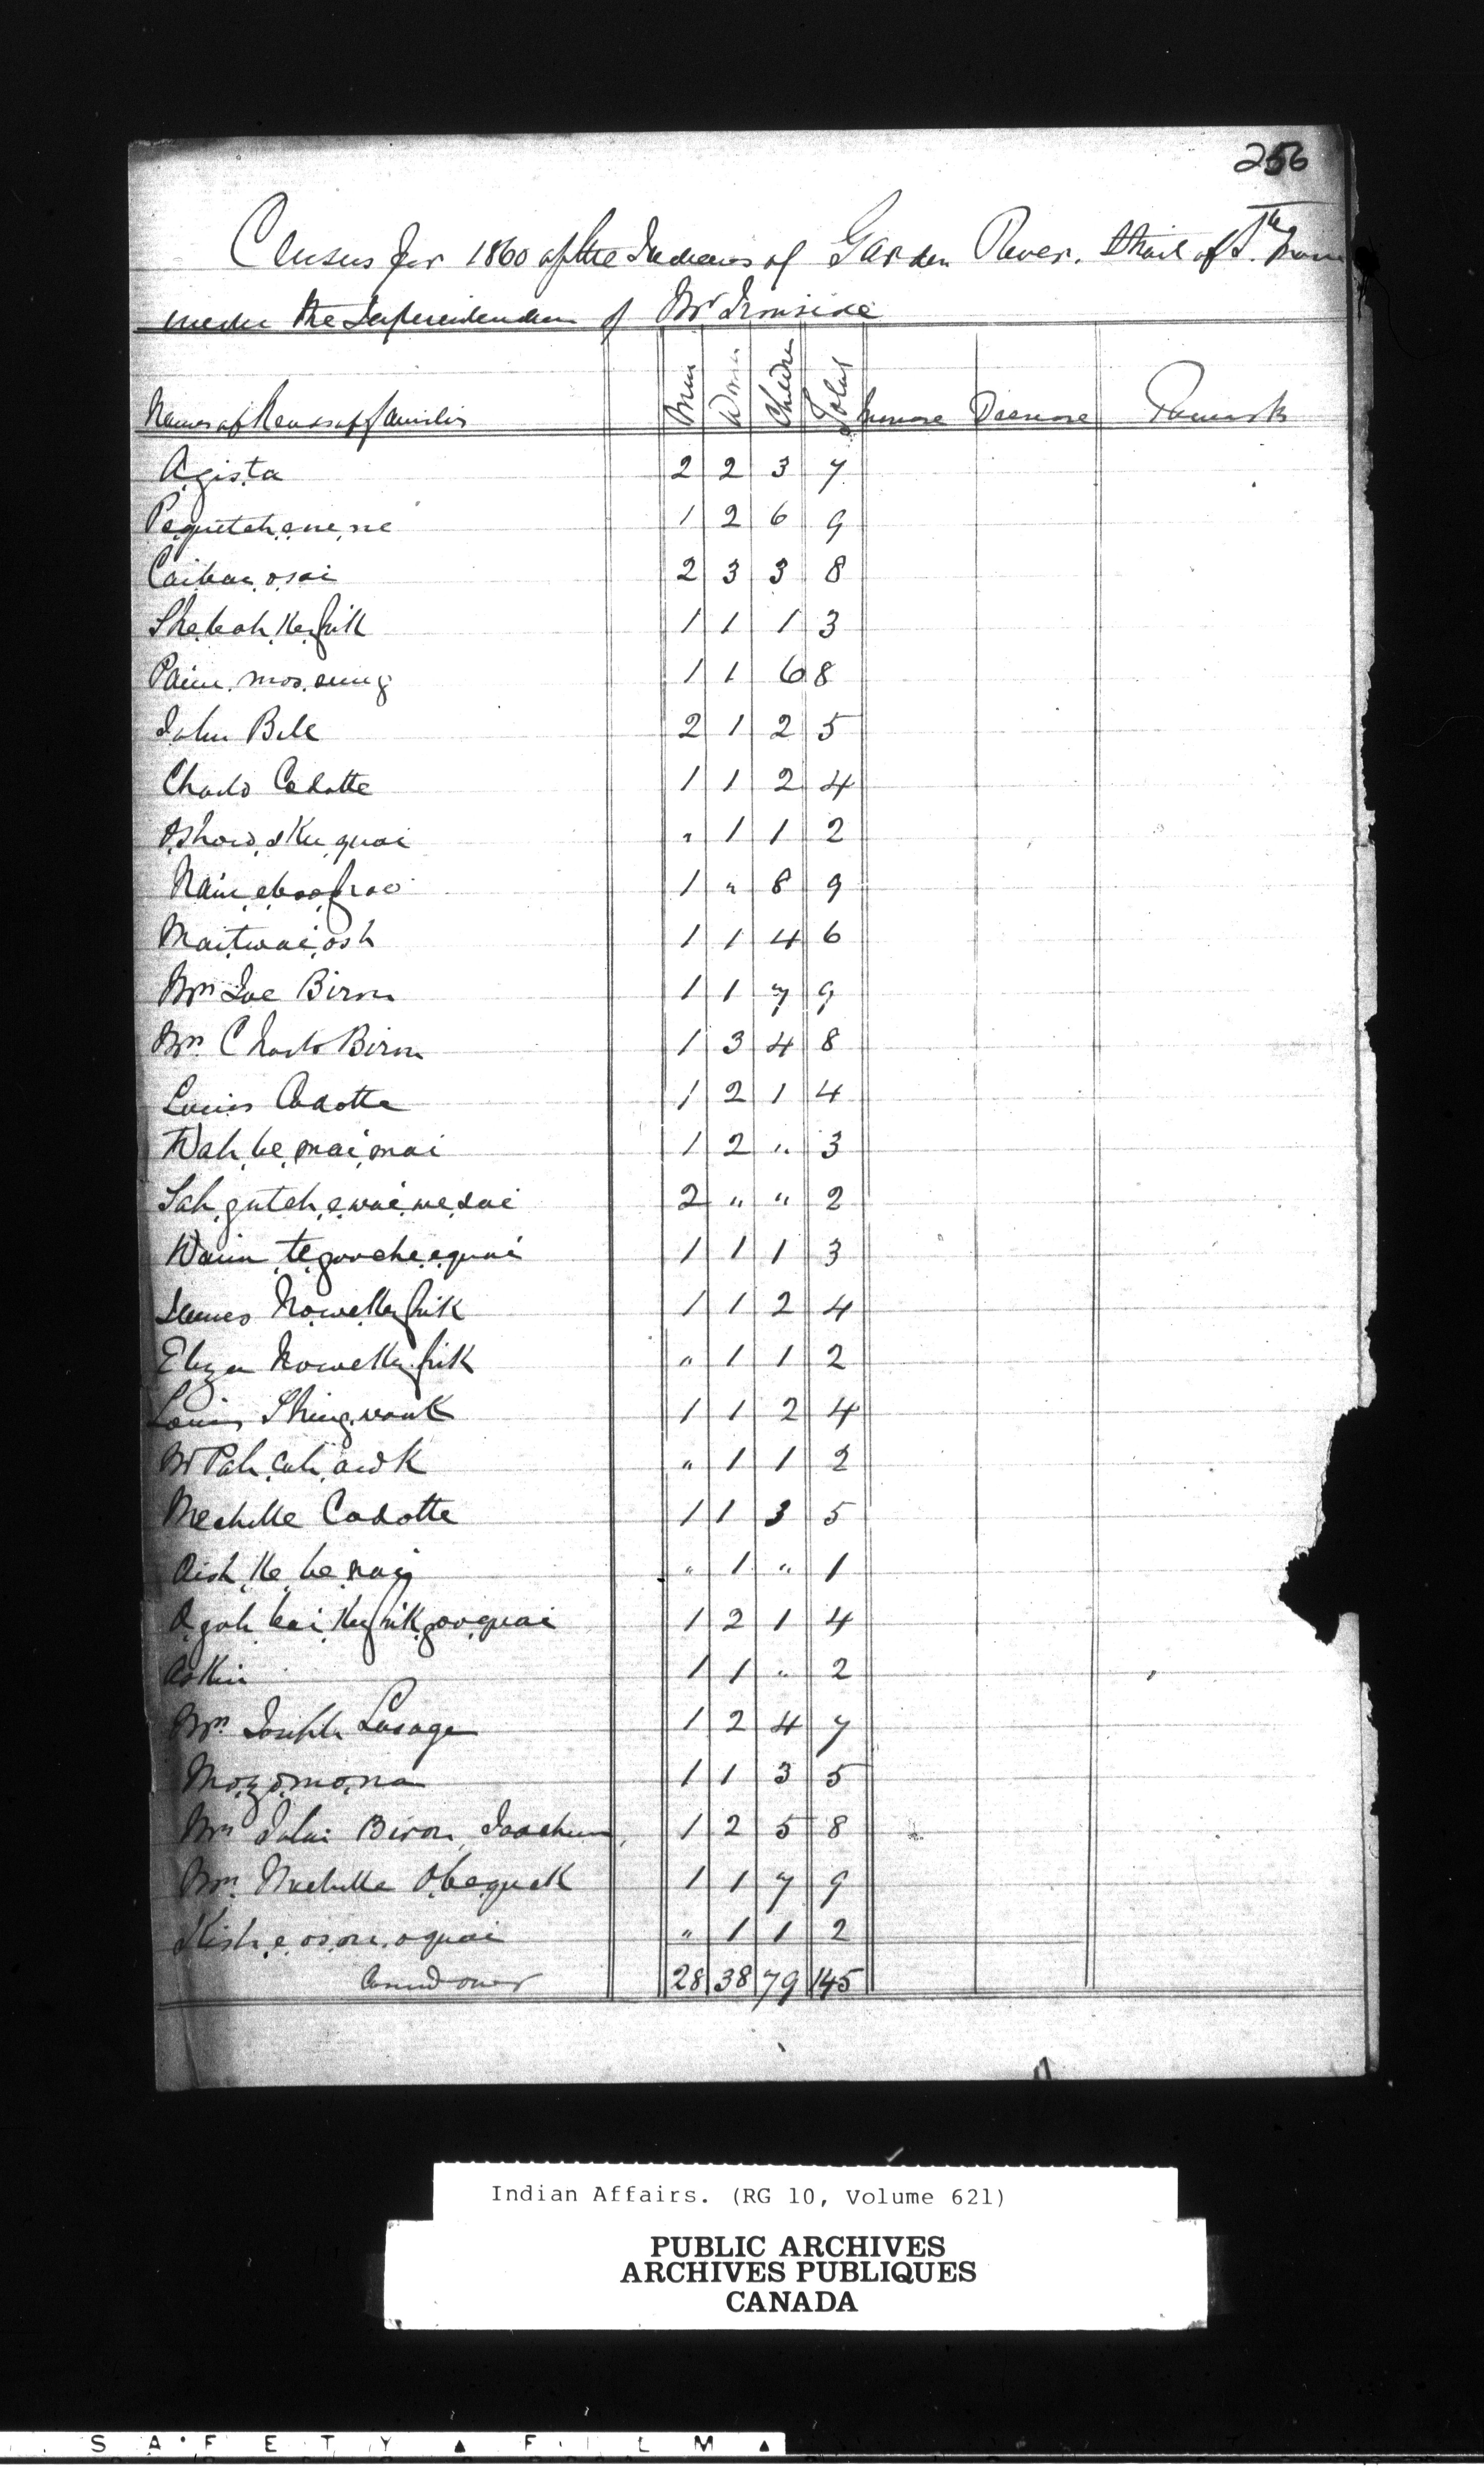 256
Census for 1860 of the Indians of Garden River. Strait of St. Mary
under the Superintendence of Mr Ironside
Names of Heads of families Men Women Children Total Increase Decrease Remarks
A,gis,ta 2 2 3 7
Pequetch,ene,ne 1 2 6 9
Caibai,osai 2 3 3 8
She,bah,Ke,jik 1 1 1 3
Paim,mos,eung 1 1 6 8
John Bell 2 1 2 5
Charlo Cadotte 1 1 2 4
O,show,sku,quai " 1 1 2
1 " 8 9
Maitwai,osh 1 1 4 6
Mrs Joe Biron 1 1 7 9
Mrs Charlo Biron 1 3 4 8
Louis Cadotte 1 2 1 4
Wah,be,mai,mai 1 2 " 3
Sah,gutch,e,wai,we,dai 2 " " 2
Waim,te,gooche,equai 1 1 1 3
James Nowe,Ke,jik 1 1 2 4
Eliza Nowe,Ke,jik " 1 1 2
Louis Shing,wauk 1 1 2 4
Mr Pah,cah,awk " 1 1 2
Mechelle Cadotte 1 1 3 5
Aish,Ke,be,naig " 1 " 1
O,gah,bai,Ke,jik,goo,quai 1 2 1 4
Askin 1 1 " 2
Mrs Joseph Lesage 1 2 4 7
Mo,zo,mo,na 1 1 3 5
Mrs John Biron, Joachim, 1 2 5 8
Mrs Mechelle Obequek 1 1 7 9
Kish,e,os,on,o,quai " 1 1 2
Carried over 28 38 79 145
Indian Affairs. (RG 10, Volume 621)
PUBLIC ARCHIVES
ARCHIVES PUBLIQUES
CANADA
SAFETY ▲ FILM ▲